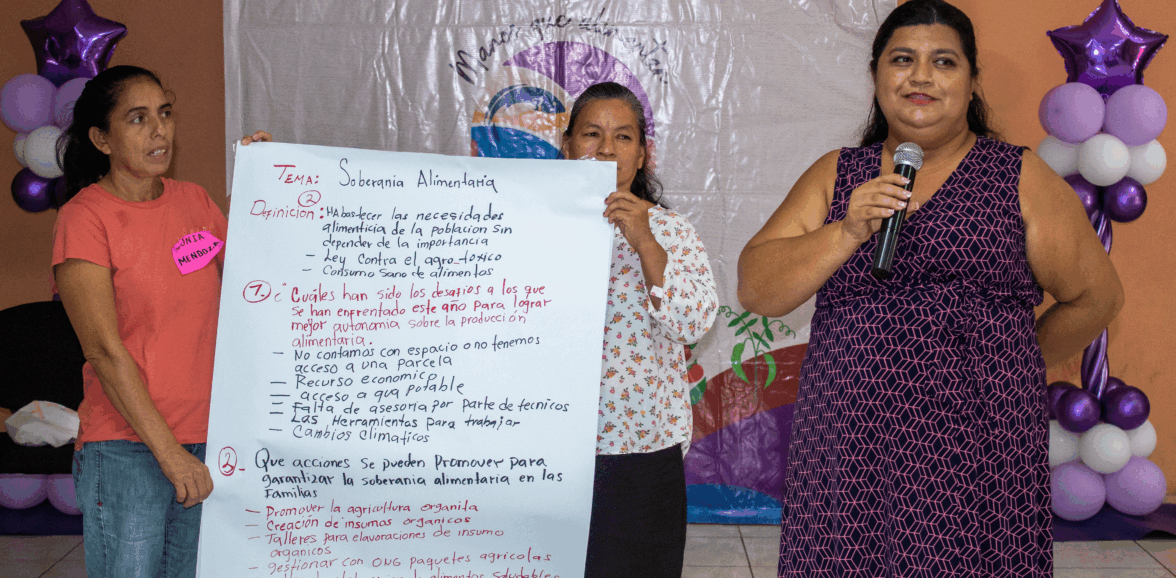 Manos que alimentan
SONIA
MENDOZA
TEMA: Soberania Alimentaria
②
Definicion: HAbastecer las necesidades
alimenticia de la poblacion sin
depender de la importancia
- Ley contra el agro-toxico
- Consumo sano de alimentos
1. ¿Cuáles han sido los desafios a los que
se han enfrentado este año para lograr
mejor autonomia sobre la producción
alimentaria.
- No contamos con espacio o no tenemos
acceso a una parcela
- Recurso economico
- acceso a gua potable
- Falta de asesoria por parte de tecnicos
- Las Herramientas para trabajar
- Cambios climaticos
2- Que acciones se pueden Promover para
garantizar la soberania alimentaria en las
Familias
- Promover la agricultura organita
- Creación de insumos organicos
- Talleres para elavoraciones de insumo
organicos
- gestionar con ONG paquetes agricolas
alimentos saludables